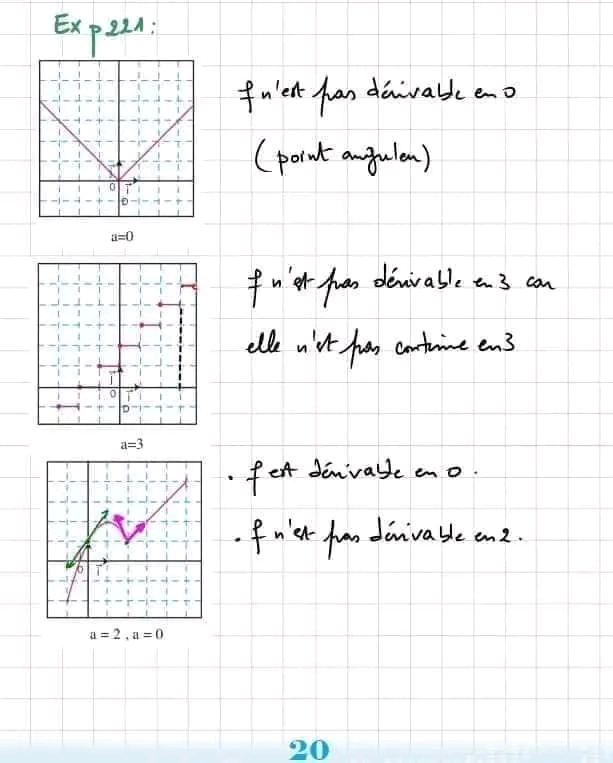 Ex p 221:
f n'est pas dérivable en 0
(point anguleu)
a=0
f n'est pas dérivable en 3 car
elle n'est pas continue en 3
a=3
. f est dérivable en 0.
. f n'est pas dérivable en 2.
a = 2 , a = 0
20